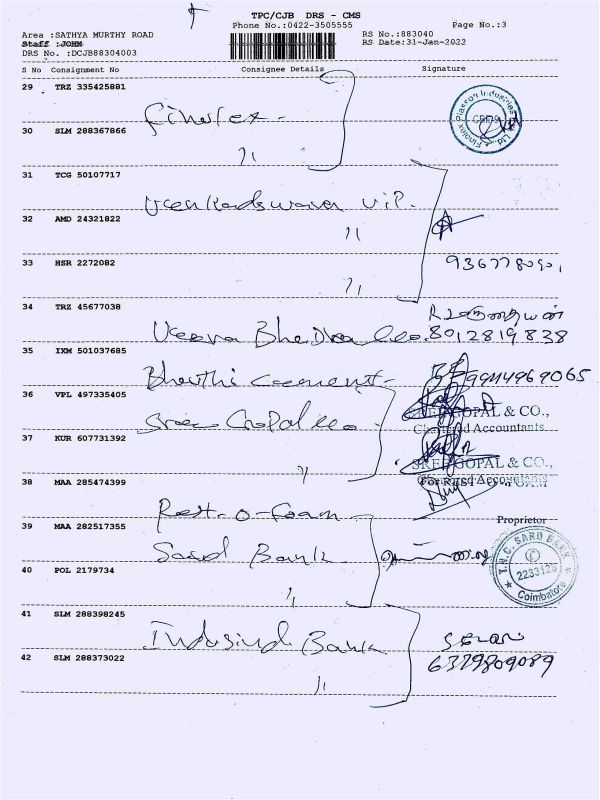 TPC/CJB DRS - CMS
Phone No.:0422-3505555 Page No.:3
Area :SATHYA MURTHY ROAD RS No.:883040
Staff :JOHN RS Date:31-Jan-2022
DRS No. :DCJB88304003
S No Consignment No Consignee Details Signature
29 TRZ 335425881
Finolex -
Finolex Plasson Industries Ltd.
30 SLM 288367866
"
31 TCG 50107717
32 AMD 24321822
"
33 HSR 2272082
"
34 TRZ 45677038
Veera Bhadra
8012819838
35 IXM 501037685
Bharthi cement -
9944969065
36 VPL 497335405
Sree Gopal &co
SREE GOPAL & CO.,
Chartered Accountants
37 KUR 607731392
"
SREE GOPAL & CO.,
Chartered Accountants
38 MAA 285474399
Rest - o - foam
Proprietor
39 MAA 282517355
Sard Bank
T.N.C. SARD BANK
2233126
Coimbatore
40 POL 2179734
"
41 SLM 288398245
Indusind Bank
6379809089
42 SLM 288373022
"